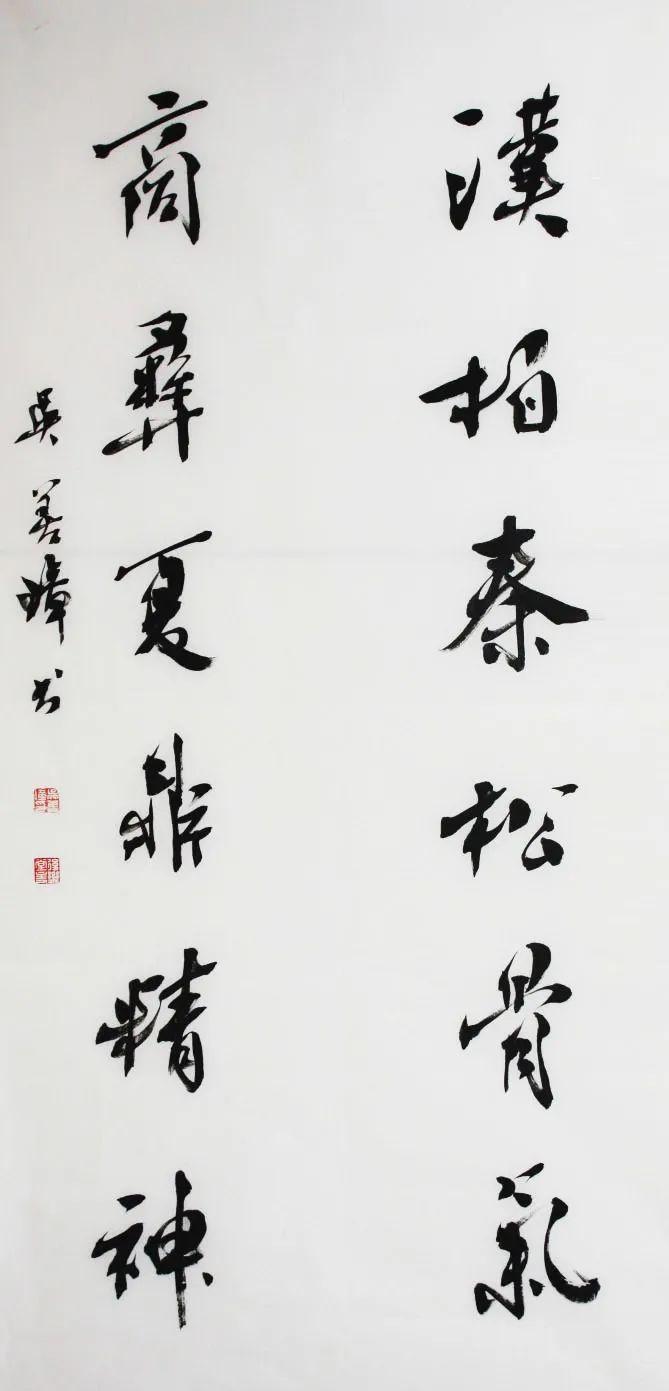 漢柏秦松骨氣
商彝夏鼎精神
吳善璋书